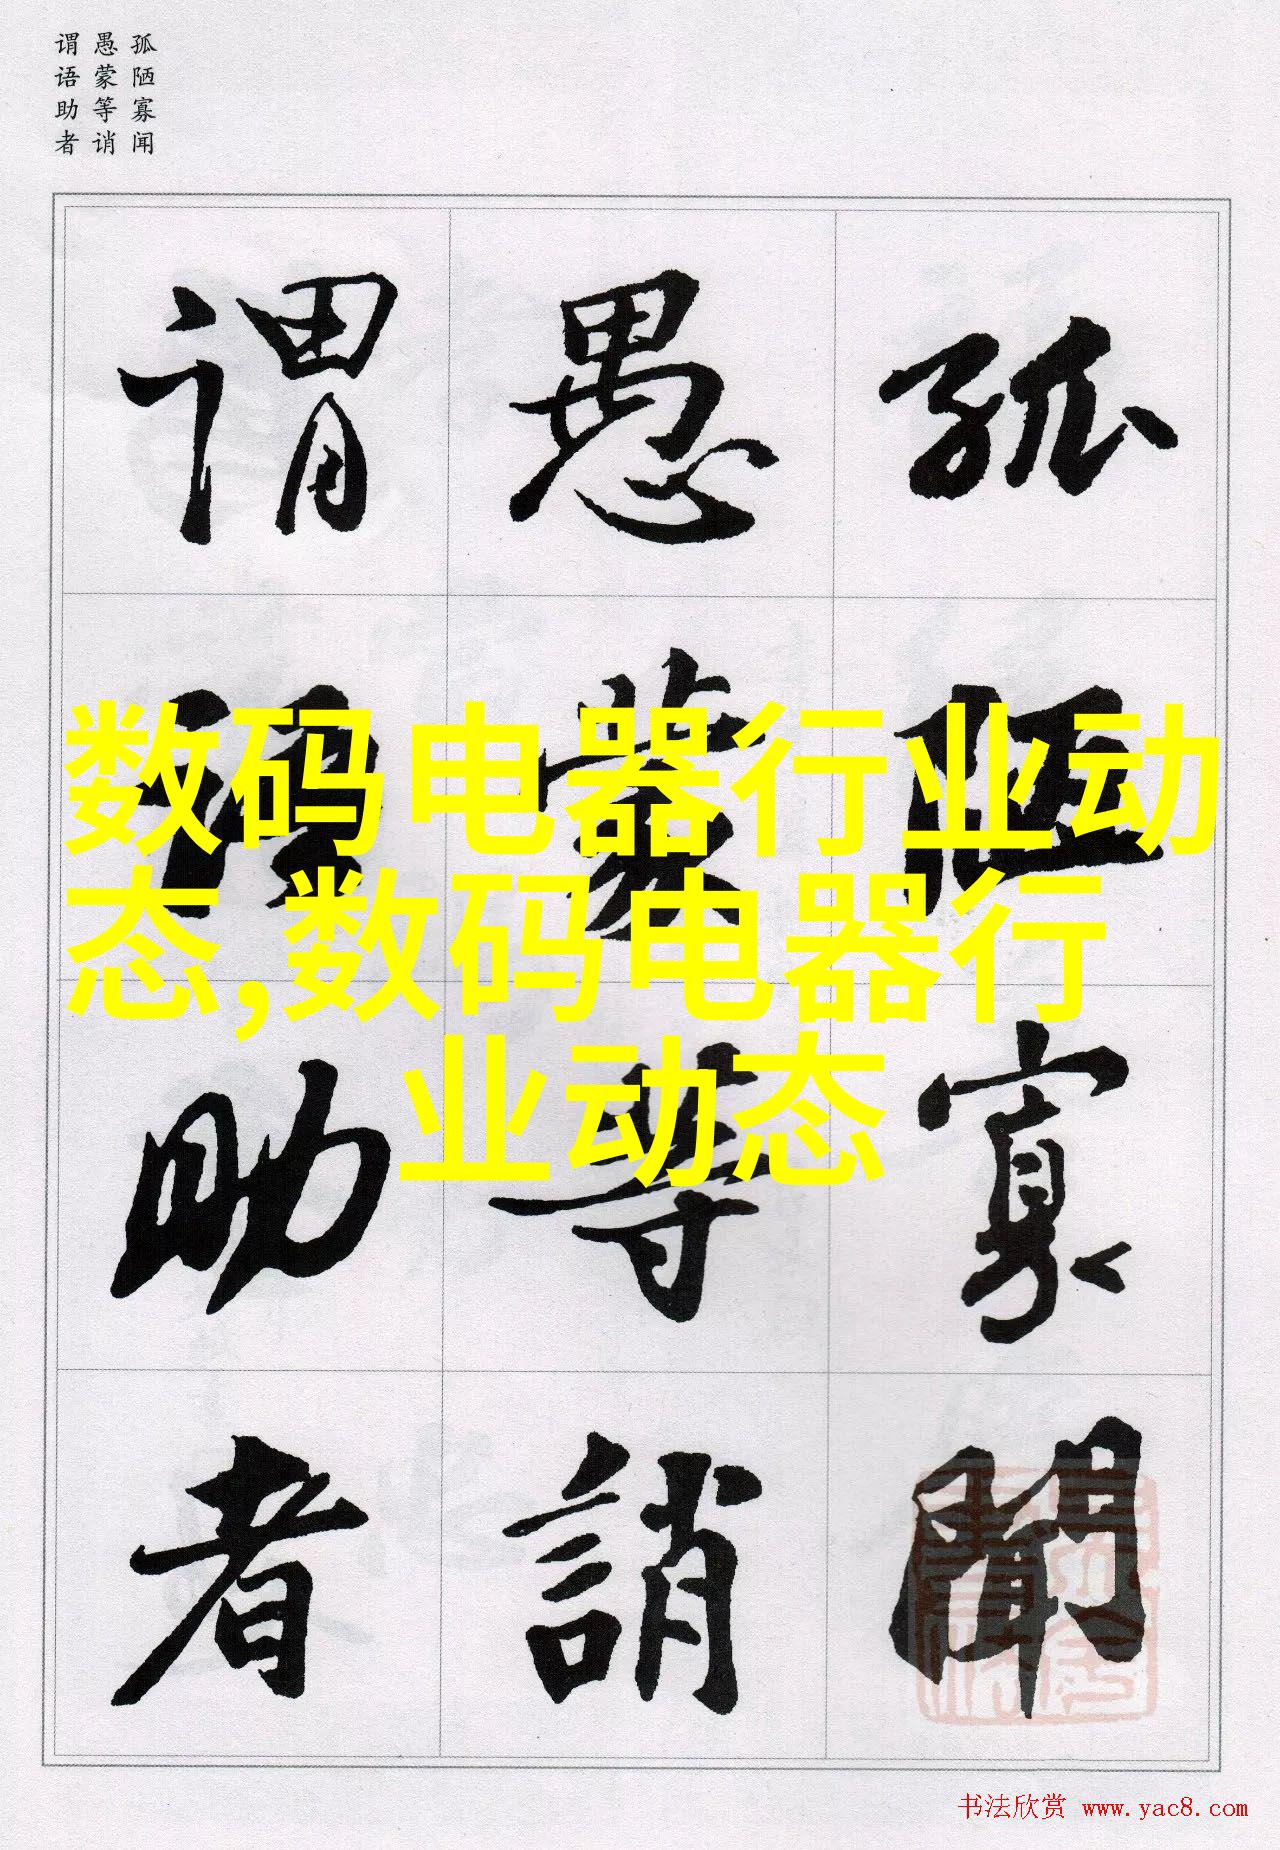 孤陋寡闻
愚蒙等诮
谓语助者
孤陋寡聞
愚蒙等誚
谓语助者
数码电器行业动
态,数码电器行
业动态
书法欣赏 www.yac8.com